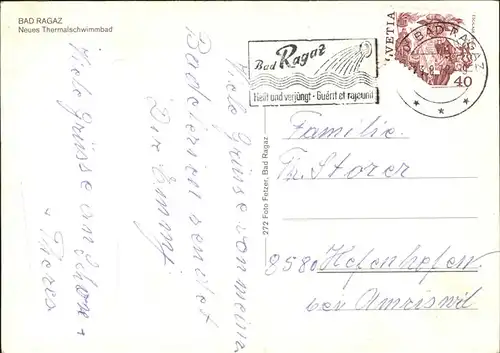 BAD RAGAZ
Neues Thermalschwimmbad
Viele Grüsse von meiner
Badeferien sendet
Die Emmy
Viele Grüsse an
+ Theres
272 Foto Fetzer, Bad Ragaz
Bad Ragaz
Heilt und verjüngt - Guérit et rajeunit
HELVETIA
40
BAD RAGAZ
Familie
Th. Storer
8580 Hefenhofen
bei Amriswil